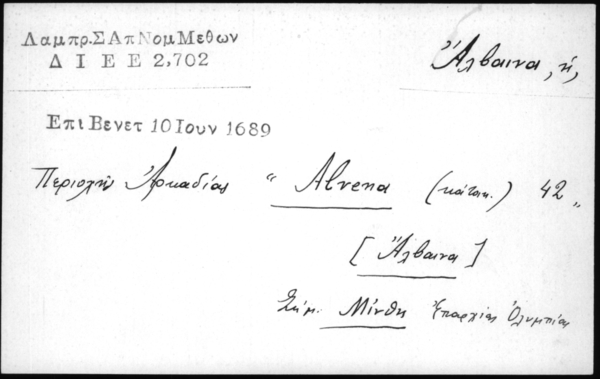 Λαμπρ.ΣΑπΝομΜεθων
Δ Ι Ε Ε 2,702
Ἄλβαινα, ἡ,
ΕπιΒενετ 10Ιουν 1689
Περιοχὴ Ἀρκαδίας " Alvena (κάτοικ.) 42 "
[Ἄλβαινα]
Σήμ. Μίνθη Ἐπαρχίας Ὀλυμπίας